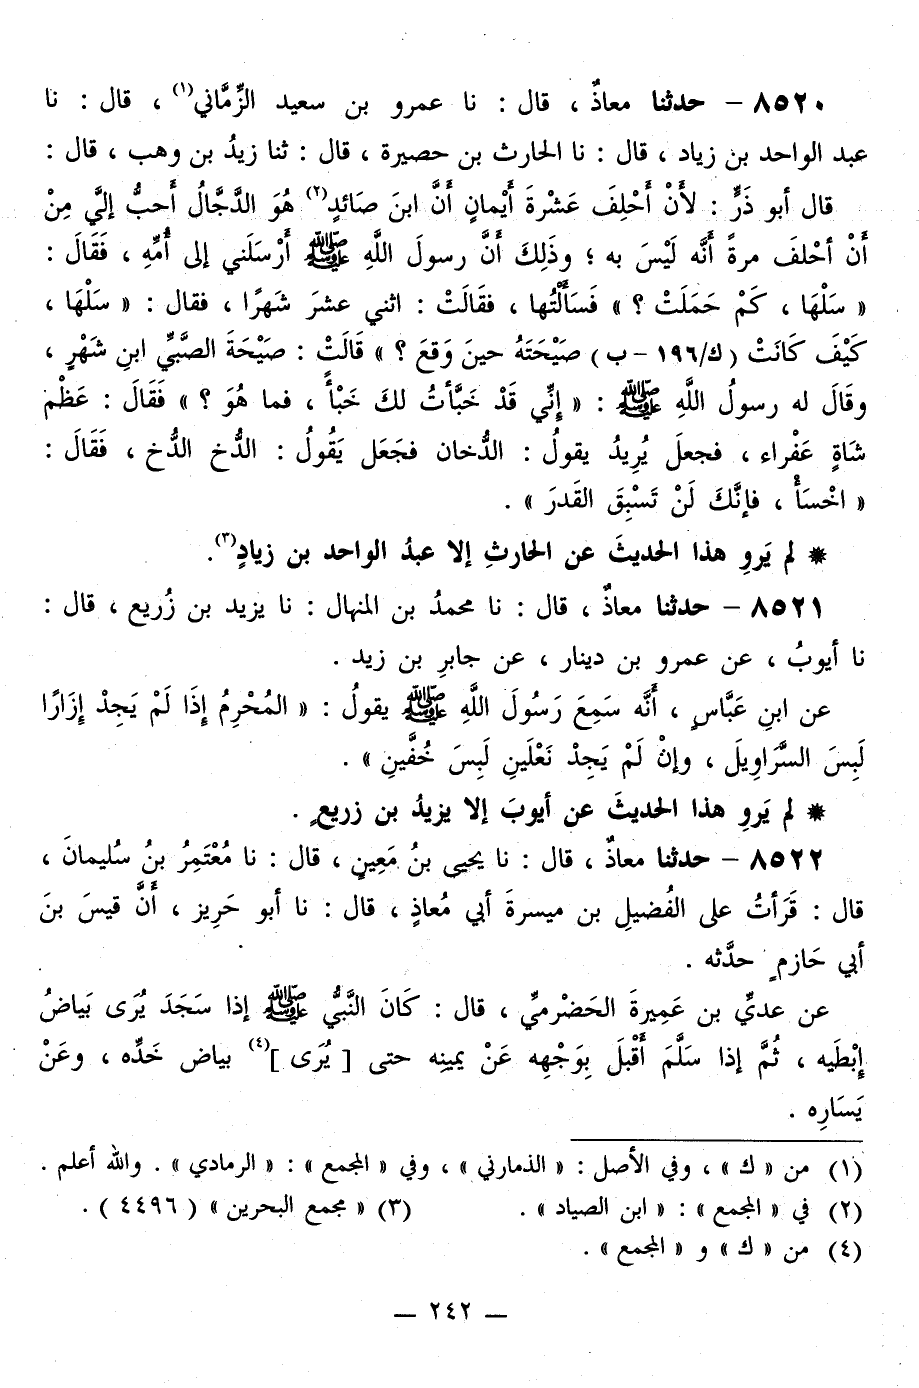 ٨٥٢٠ - حدثنا معاذٌ ، قال : نا عمرو بن سعيد الزِّمَّاني(١) ، قال : نا
عبد الواحد بن زياد ، قال : نا الحارث بن حصيرة ، قال : ثنا زيدُ بن وهب ، قال :
قال أبو ذَرٍّ : لأَنْ أَحْلِفَ عَشْرةَ أَيْمانٍ أَنَّ ابنَ صائدٍ(٢) هُوَ الدَّجَّالُ أَحبُّ إليَّ مِنْ
أَنْ أحْلفَ مرةً أَنَّه لَيْسَ به ؛ وذَلِكَ أَنَّ رسولَ اللَّهِ ﷺ أَرْسَلَني إلى أُمِّهِ ، فَقَالَ :
« سَلْهَا ، كَمْ حَمَلَتْ ؟ » فَسَأَلْتُها ، فقَالَتْ : اثني عشرَ شَهرًا ، فقال : « سَلْهَا ،
كَيْفَ كَانَتْ (ك/١٩٦ - ب) صَيْحَتَهُ حينَ وَقعَ ؟ » قَالَتْ : صَيْحَةَ الصَّبِّي ابنِ شَهْرٍ ،
وقَالَ له رسولُ اللَّهِ ﷺ : « إِنِّي قَدْ خَبَّأتُ لكَ خَبْأً ، فما هُوَ ؟ » فَقَالَ : عَظْم
شَاةٍ عَفْراء ، فجعلَ يُرِيدُ يقولُ : الدُّخان فجَعَل يَقُولُ : الدُّخ الدُّخ ، فَقَالَ :
« اخْسَأْ ، فإنَّكَ لَنْ تَسْبِقَ القَدرَ » .
* لم يَروِ هذا الحديثَ عن الحارثِ إلا عبدُ الواحد بن زيادٍ(٣).
٨٥٢١ - حدثنا معاذٌ ، قال : نا محمدُ بن المنهال : نا يزيد بن زُريع ، قال :
نا أيوبُ ، عن عمرو بن دينار ، عن جابرِ بن زيد .
عن ابنِ عَبَّاسٍ ، أَنَّه سَمِعَ رَسُولَ اللَّهِ ﷺ يقولُ : « المُحْرِمُ إِذَا لَمْ يَجِدْ إِزَارًا
لَبِسَ السَّرَاوِيلَ ، وإنْ لَمْ يَجِدْ نَعْلَينِ لَبِسَ خُفَّينِ » .
* لم يَروِ هذا الحديثَ عن أيوبَ إلا يزيدُ بن زريعٍ .
٨٥٢٢ - حدثنا معاذٌ ، قال : نا يحيى بنُ مَعِينٍ ، قال : نا مُعْتَمِرُ بنُ سُليمانَ ،
قال : قَرَأتُ على الفُضيلِ بن ميسرةَ أبي مُعاذٍ ، قال : نا أبو حَريز ، أَنَّ قيسَ بنَ
أبي حَازمٍ حدَّثه .
عن عديِّ بن عَمِيرةَ الحَضْرميِّ ، قال : كَانَ النَّبيُّ ﷺ إذا سَجَدَ يُرَى بَياضُ
إبْطَيه ، ثُمَّ إذا سَلَّمَ أَقْبلَ بِوَجْهِه عَنْ يمينِه حتى [ يُرَى ](٤) بياض خَدِّه ، وعَنْ
يَسَارِه .
(١) من « ك » ، وفي الأصل : « الذماري » ، وفي « المجمع » : « الرمادي » . والله أعلم .
(٢) في « المجمع » : « ابن الصياد » . (٣) « مجمع البحرين » ( ٤٤٩٦ ) .
(٤) من « ك » و « المجمع » .
— ٢٤٢ —